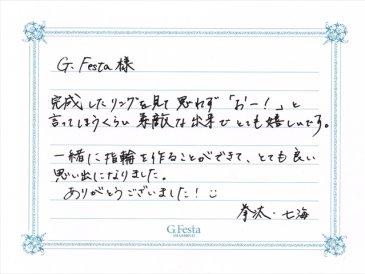 G. Festa 様
完成したリングを見て思わず「おー！」と
言ってしまうくらい素敵な出来でとても嬉しいです。
一緒に指輪を作ることができて、とても良い
思い出になりました。
ありがとうございました！
拳汰・七海
G.Festa